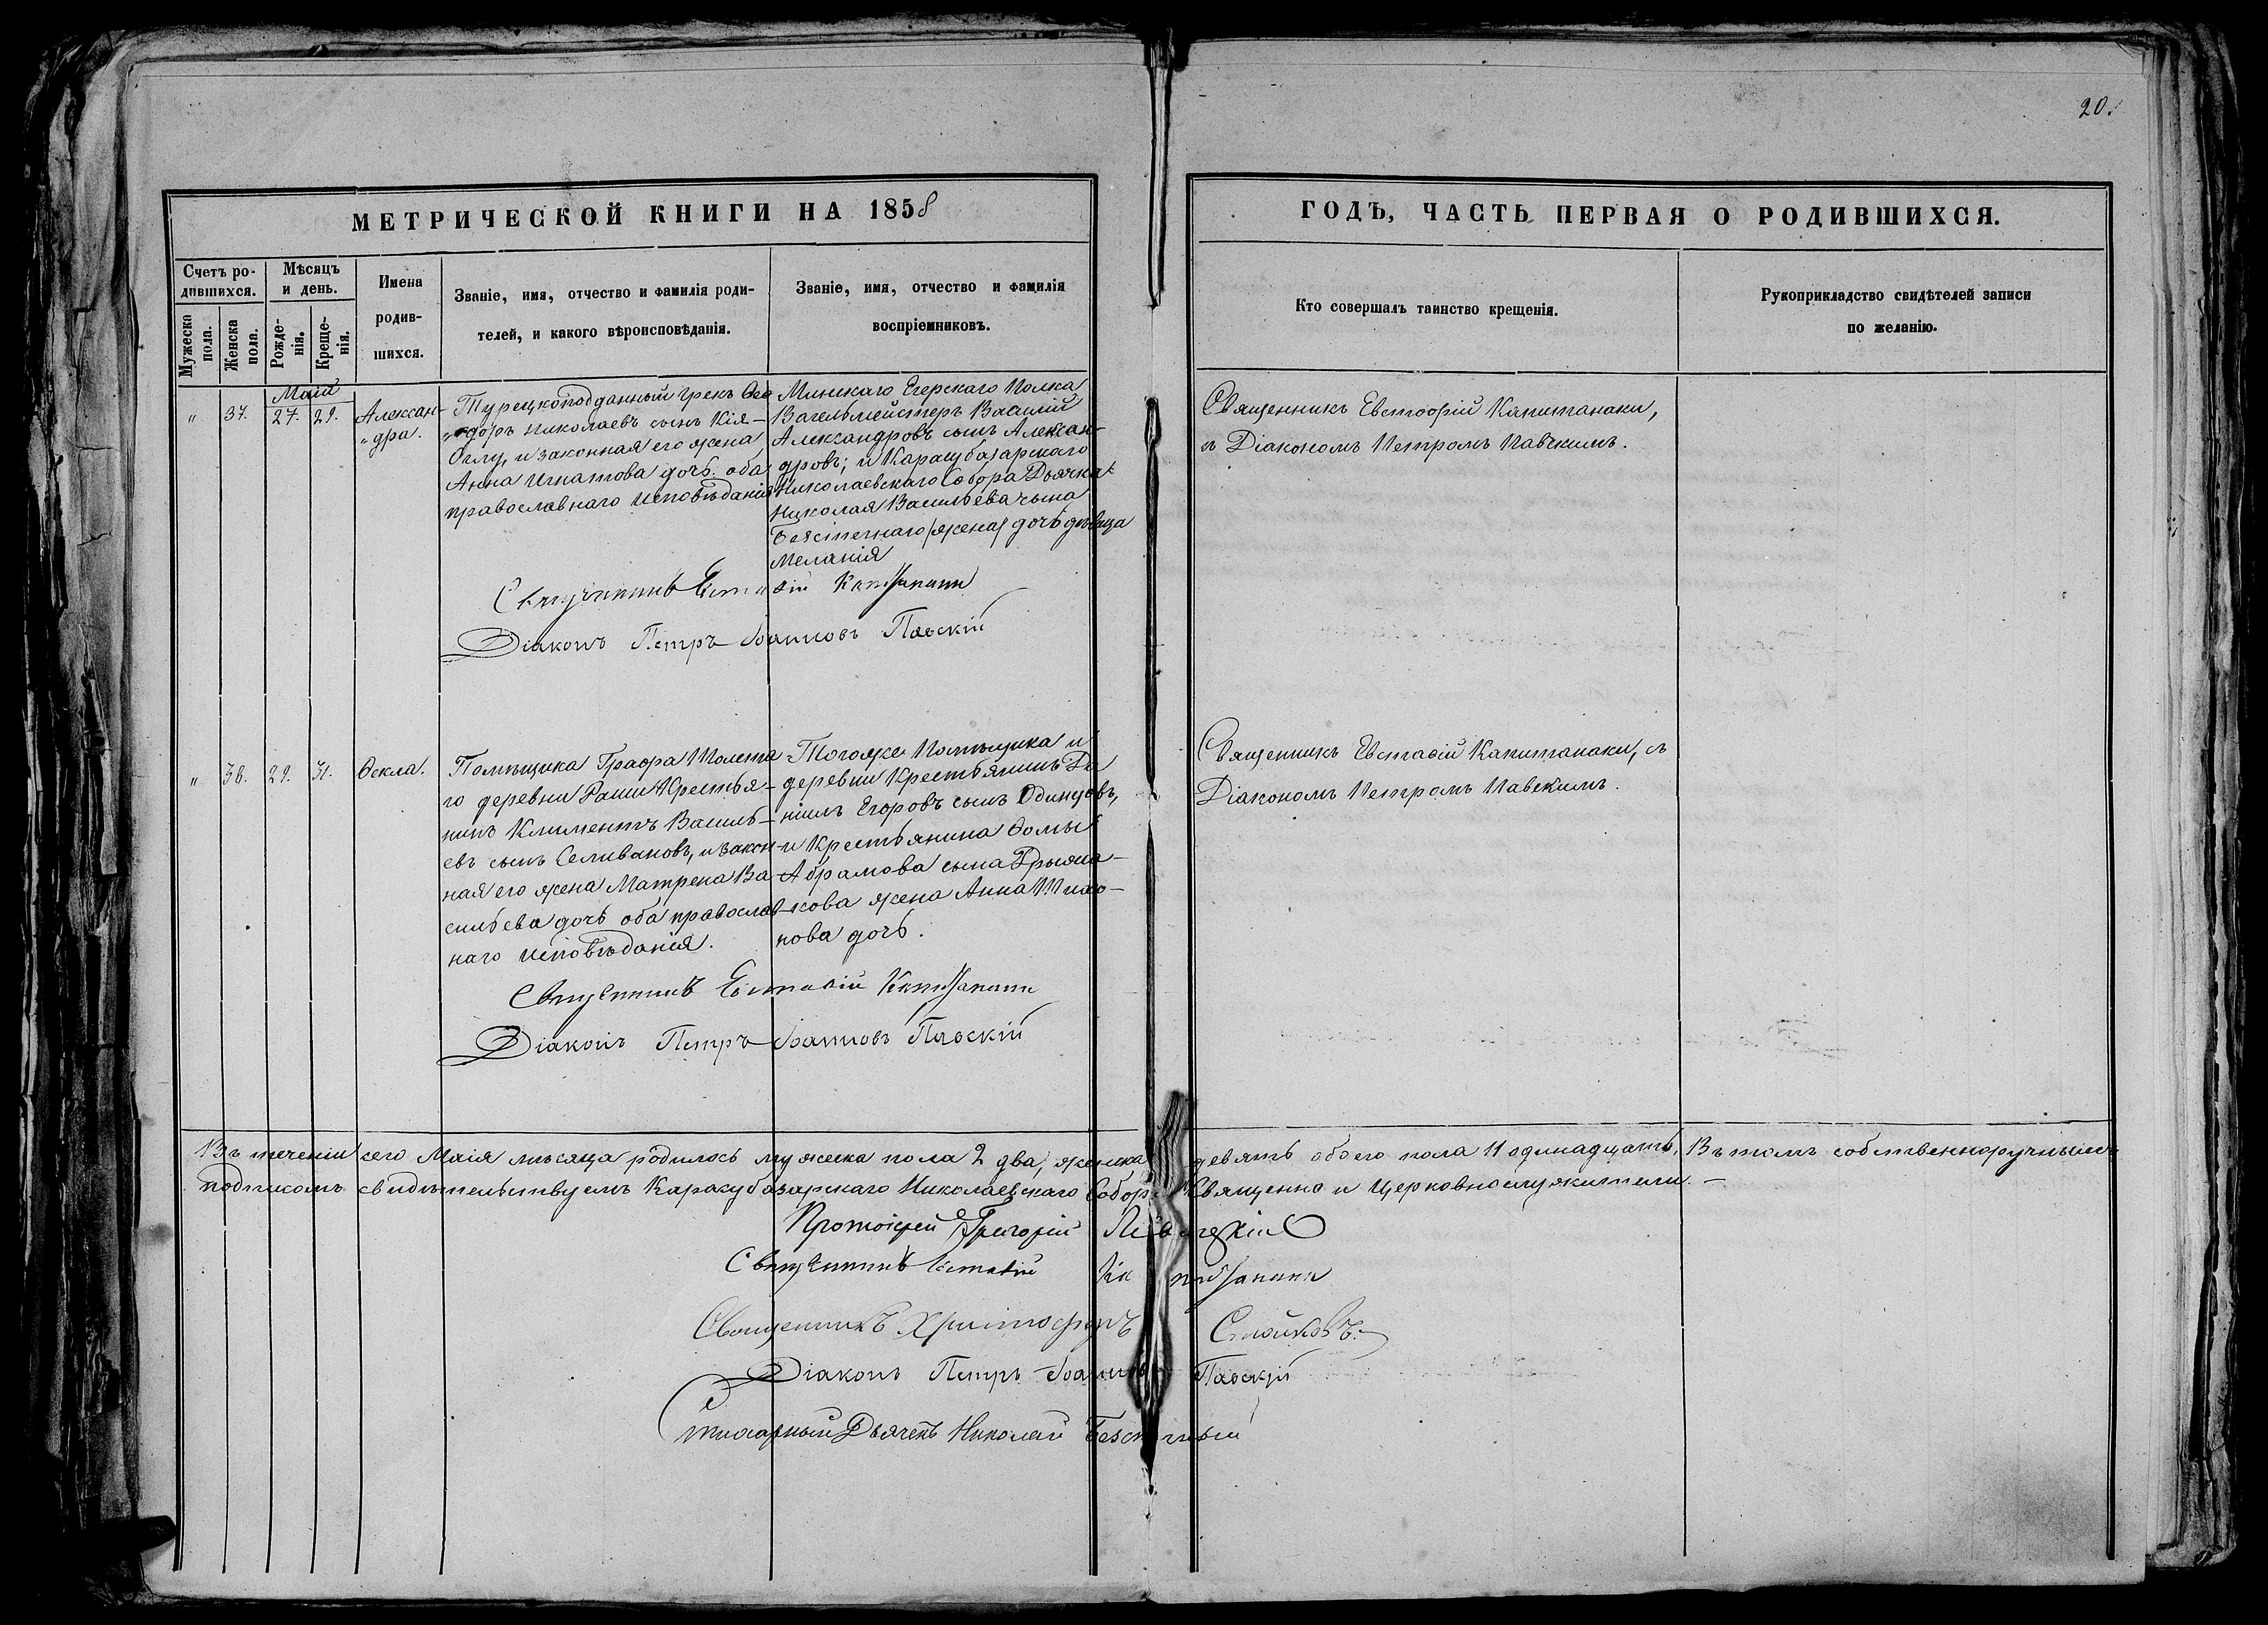 20.
МЕТРИЧЕСКОЙ КНИГИ НА 1858
ГОДЪ, ЧАСТЬ ПЕРВАЯ О РОДИВШИХСЯ.
Счетъ ро-
дившихся.
Мужеска
пола.
Женска
пола.
Мѣсяцъ
и день.
Рожде-
нія.
Креще-
нія.
Имена
родив-
шихся.
Званіе, имя, отчество и фамилія роди-
телей, и какого вѣроисповѣданія.
Званіе, имя, отчество и фамилія
воспріемниковъ.
Кто совершалъ таинство крещенія.
Рукоприкладство свидѣтелей записи
по желанію.
Маія
" 37. 27. 29.
Алексан-
"дра.
Турецкоподданный грекъ Ѳео
"доръ Николаевъ сынъ Кія-
Оглу, и законная его жена
Анна Игнатова дочь. оба
православнаго исповѣданія
Минскаго Егерскаго Полка
Вагельмейстеръ Василій
Александровъ сынъ Алексан-
дровъ; и Карасубазарскаго
Николаевскаго Собора Дьячка
Николая Васильева сына
Безсчетнаго /жена/ дочь дѣвица
Меланія
Священникъ Евстафій Капитанаки,
съ Діакономъ Петромъ Павскимъ.
Священникъ Евстафій Капитанаки
Діаконъ Петръ Іоанновъ Павскій
" 38. 29. 31. Ѳекла.
Помѣщика Графа Толста
го деревни Крестья-
нинъ Климентъ Василь-
евъ сынъ Селивановъ, и закон-
ная его жена Матрена Ва-
сильева дочь оба православ-
наго исповѣданія.
Тогоже Помѣщика и
деревни Крестьянинъ Да
ніилъ Егоровъ сынъ Одинцовъ,
и Крестьянина Ѳомы
Абрамова сына
кова жена Анна
нова дочь.
Священникъ Евстафій Капитанаки, съ
Діакономъ Петромъ Павскимъ.
Священникъ Евстафій Капитанаки
Діаконъ Петръ Іоанновъ Павскій
Въ теченіи сего Маія мѣсяца родилось мужеска пола 2 два, женска девять обоего пола 11 одинадцать, Въ томъ собственноручнымъ
подписомъ свидѣтельствуемъ Карасубазарскаго Николаевскаго Собора Священно и Церковнослужители. -
Протоіерей Григорій
Священникъ Евстафій Капитанаки
Священникъ Христофоръ Стойковъ.
Діаконъ Петръ Іоанновъ Павскій
Стихарный Дьячекъ Николай Безсчетный